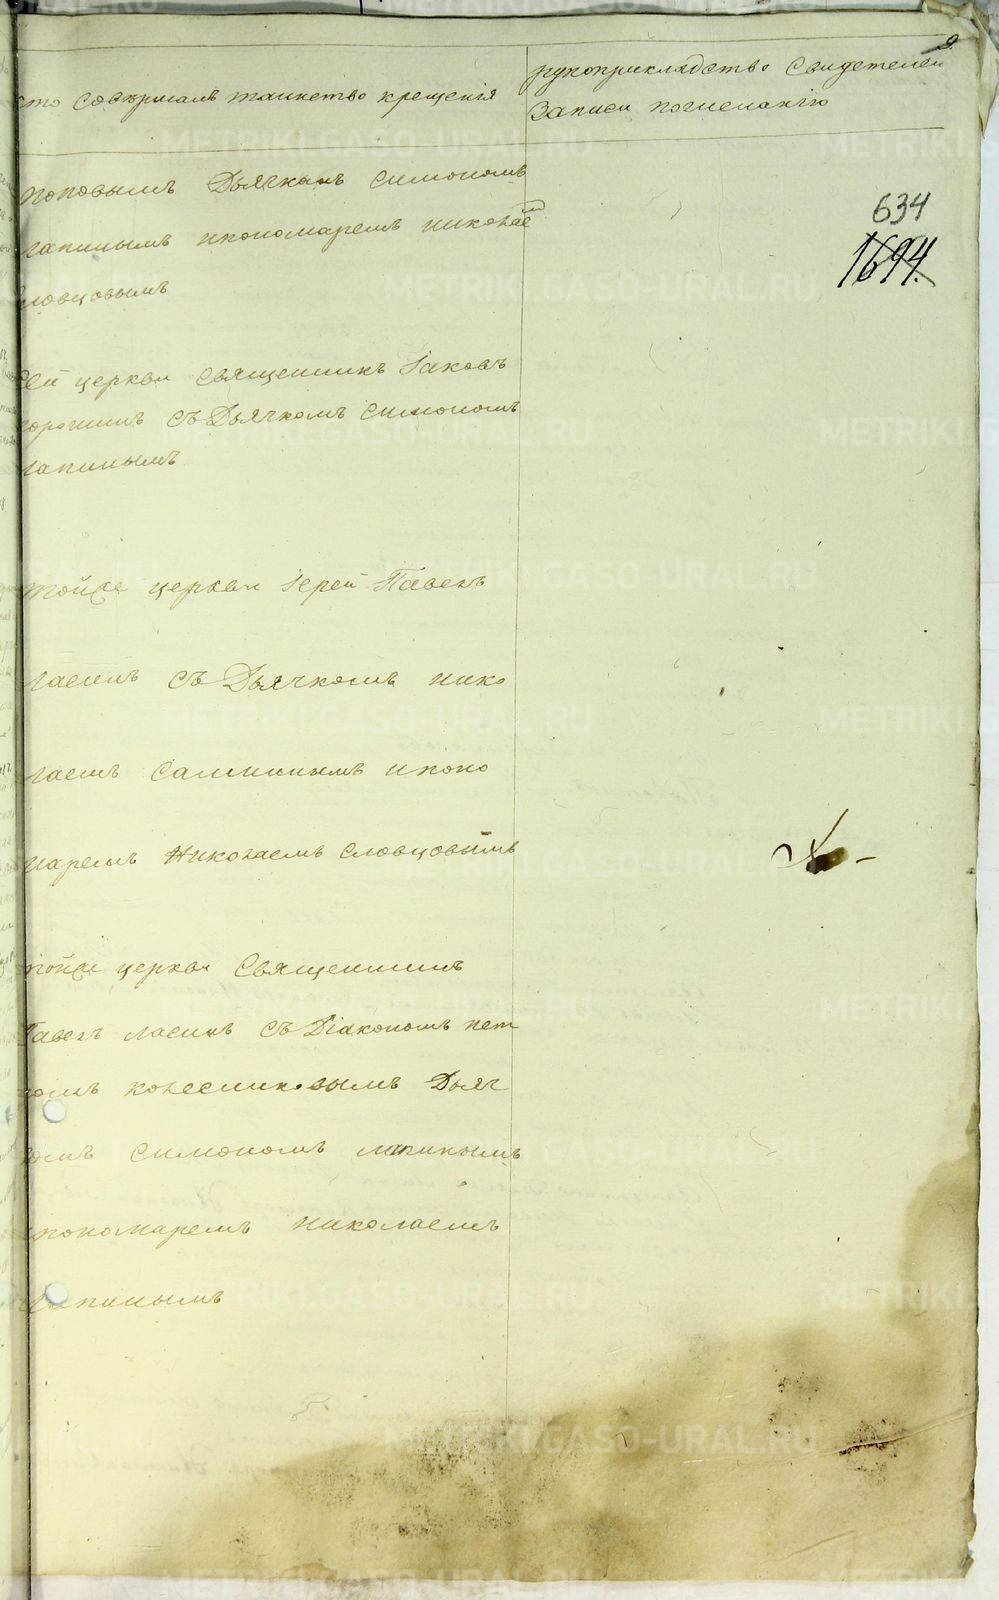 кто совершалъ таинство крещенія
рукоприкладство свидетелей
записи по желанію
634
1694.
поповымъ Дьячкомъ Симономъ
лапинымъ ипономаремъ николае
словцовымъ
сей церкви священникъ Іаковъ
съ Дьячкомъ симономъ
лапинымъ
тойже церкви Іерей Павелъ
съ Дьячкомъ нико
лаемъ ипоно
маремъ Николаемъ словцовымъ
тойже церкви Священникъ
Павелъ съ Діакономъ пет
ромъ колесниковымъ Дьяч
комъ симономъ лапинымъ
пономаремъ николаемъ
METRIKI.GASO-URAL.RU